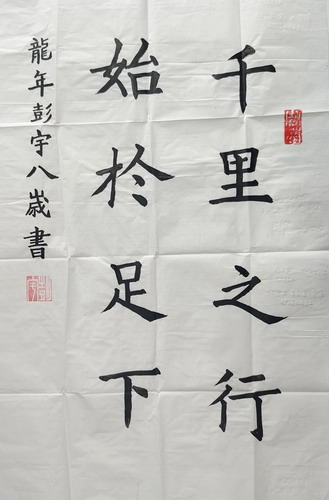 千里之行
始於足下
龍年彭宇八歲書